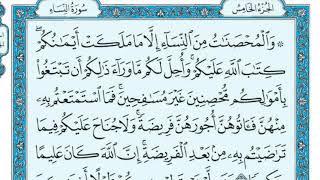 الجزء الخامس
سورة النساء
وَالْمُحْصَنَاتُ مِنَ النِّسَاءِ إِلَّا مَا مَلَكَتْ أَيْمَانُكُمْ
كِتَابَ اللَّهِ عَلَيْكُمْ وَأُحِلَّ لَكُم مَّا وَرَاءَ ذَٰلِكُمْ أَن تَبْتَغُوا
بِأَمْوَالِكُم مُّحْصِنِينَ غَيْرَ مُسَافِحِينَ فَمَا اسْتَمْتَعْتُم بِهِ
مِنْهُنَّ فَآتُوهُنَّ أُجُورَهُنَّ فَرِيضَةً وَلَا جُنَاحَ عَلَيْكُمْ فِيمَا
تَرَاضَيْتُم بِهِ مِن بَعْدِ الْفَرِيضَةِ إِنَّ اللَّهَ كَانَ عَلِيمًا